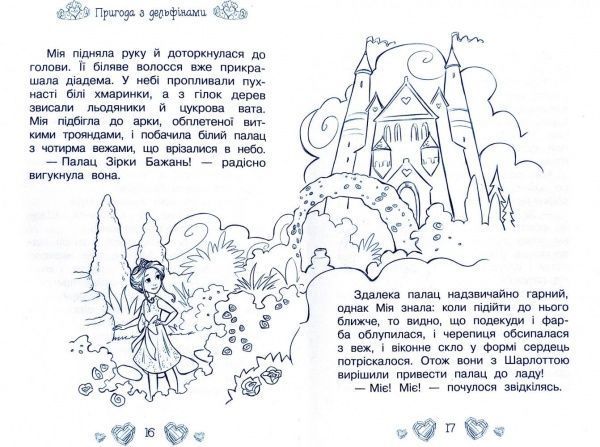 Пригода з дельфінами
Мія підняла руку й доторкнулася до
голови. Її біляве волосся вже прикра-
шала діадема. У небі пропливали пух-
насті білі хмаринки, а з гілок дерев
звисали льодяники й цукрова вата.
Мія підбігла до арки, обплетеної вит-
кими трояндами, і побачила білий палац
з чотирма вежами, що врізалися в небо.
— Палац Зірки Бажань! — радісно
вигукнула вона.
16
Здалека палац надзвичайно гарний,
однак Мія знала: коли підійти до нього
ближче, то видно, що подекуди і фар-
ба облупилася, і черепиця обсипалася
з веж, і віконне скло у формі сердець
потріскалося. Отож вони з Шарлоттою
вирішили привести палац до ладу!
— Міє! Міє! — почулося звідкілясь.
17